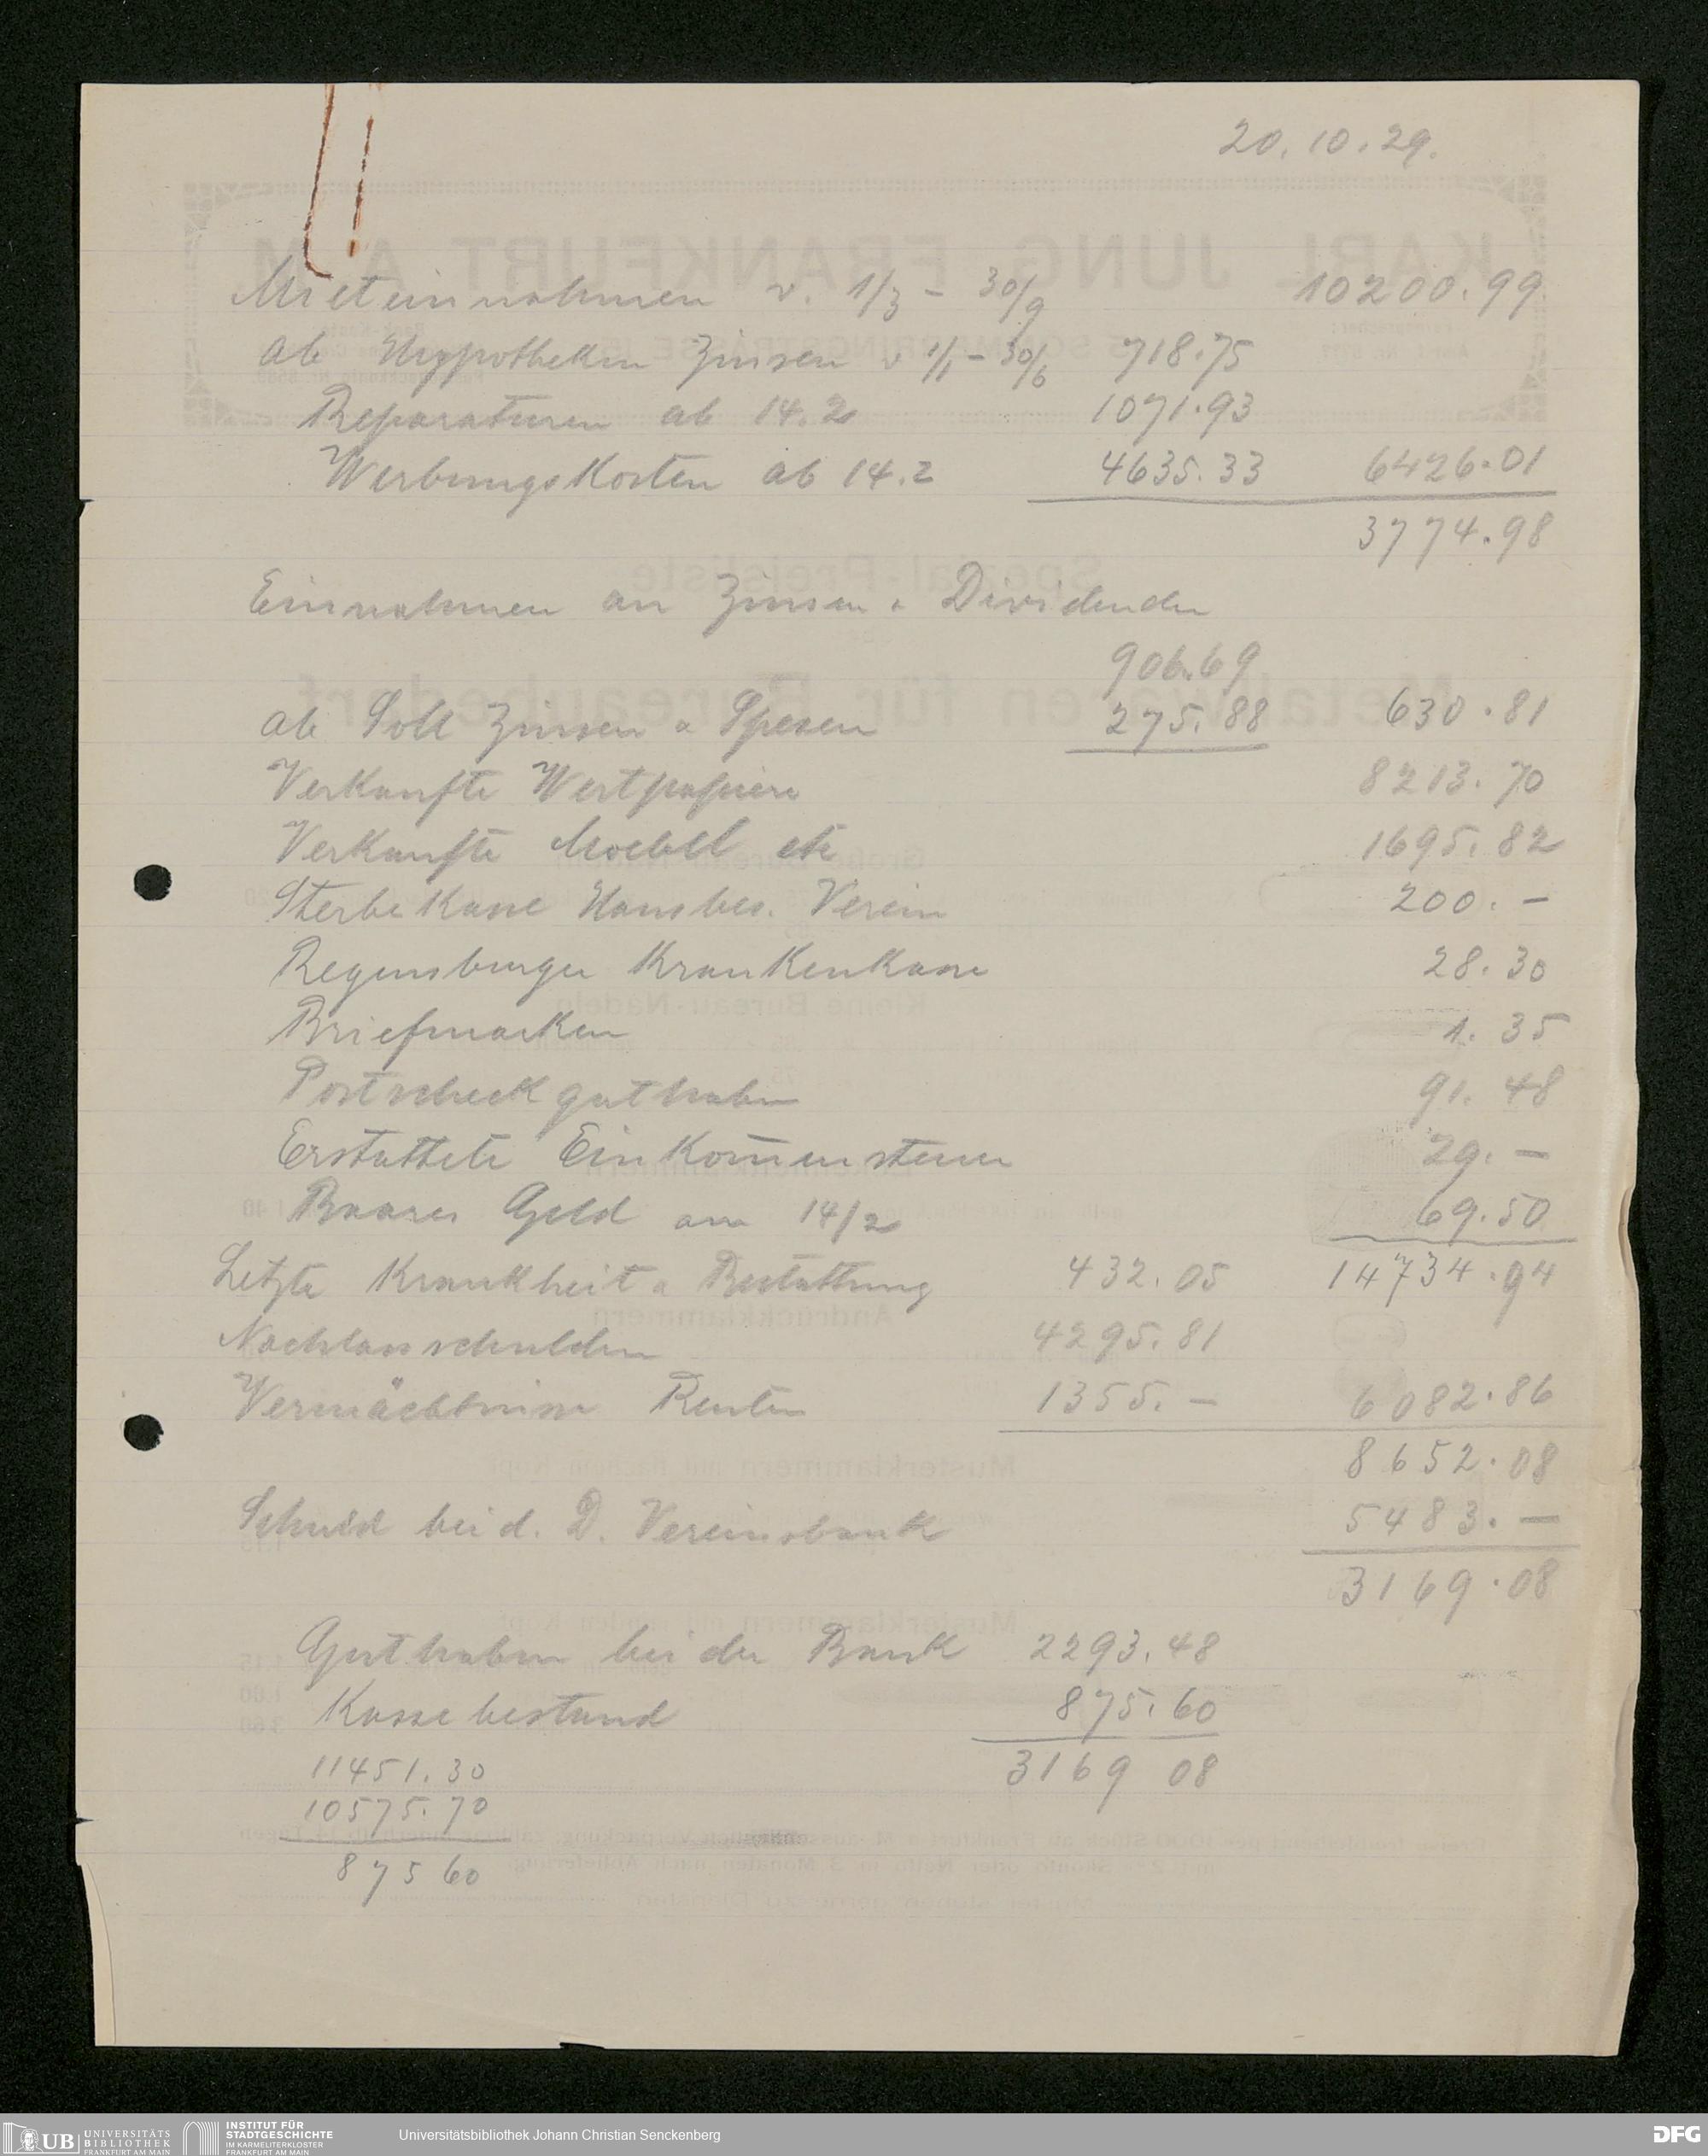 20. 10. 29.
Mieteinnahmen v. 1/3 - 30/9 10200.99
ab Hyppotheken Zinsen v 1/1 - 30/6 718.75
Reparaturen ab 14.2 1071.93
Werbungskosten ab 14.2 4635.33 6426.01
3774.98
Einnahmen an Zinsen & Dividenden
906.69
ab Soll Zinsen & Spesen 275.88 630.81
Verkaufte Wertpapiere 8213.70
Verkaufte Moebel etc 1695.82
Sterbekasse Hausbes. Verein 200. -
Regensburger Krankenkasse 28.30
Briefmarken 1.35
Postscheckguthaben 91.48
Erstattete Einkom̄ensteuer 29. -
Baares Geld am 14/2 69.50
Letzte Krankheit & Bestattung 432.05 14734.94
Nachlassschulden 4295.81
Vermächtnisse Renten 1355. - 6082.86
8652.08
Schuld bei d. D. Vereinsbank 5483. -
3169.08
Guthaben bei der Bank 2293.48
Kassebestand 875.60
11451.30 3169 08
10575.70
875 60
UB UNIVERSITÄTS
BIBLIOTHEK
FRANKFURT AM MAIN
INSTITUT FÜR
STADTGESCHICHTE
IM KARMELITERKLOSTER
FRANKFURT AM MAIN
Universitätsbibliothek Johann Christian Senckenberg
DFG